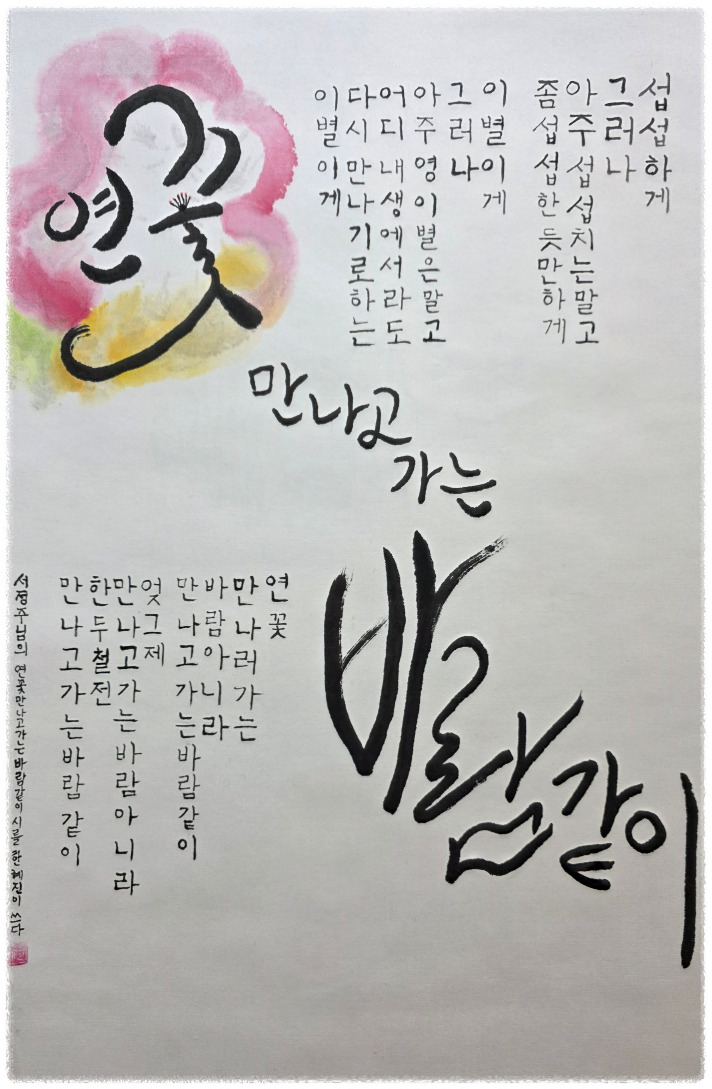 연꽃
만나고
가는
바람
같이
섭섭하게
그러나
아주 섭섭치는말고
좀 섭섭한 듯만하게
이별이게
그러나
아주 영이별은말고
어디 내생에서라도
다시 만나기로하는
이별이게
연꽃
만나러가는
바람아니라
만나고가는바람같이
엇그제
만나고가는바람아니라
한두철전
만나고가는바람같이
서정주님의 연꽃만나고가는바람같이시를 한혜진이 쓰다